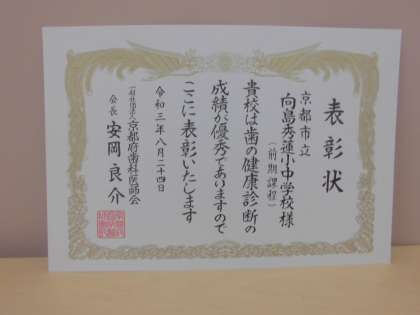 表彰状
京都市立
向島秀蓮小中学校様
(前期課程)
貴校は歯の健康診断の
成績が優秀でありますので
ここに表彰いたします
令和三年八月二十四日
一般社団法人京都府歯科医師会
会長 安岡良介